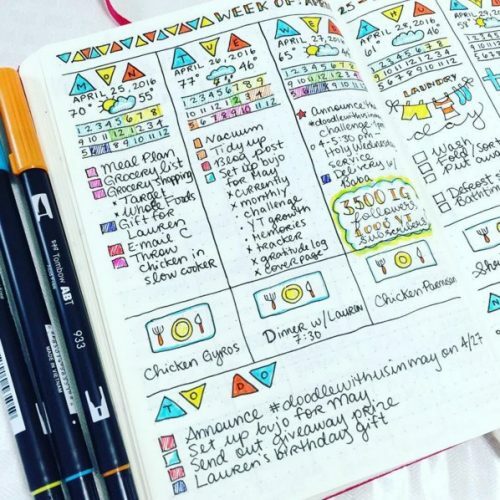 WEEK OF: APRIL 25
MON
APRIL 25, 2016
70° 55°
1 2 3 4 5 6 7 8 9
10 11 12
Meal Plan
Grocery list
Grocery shopping
* Target
* Whole Foods
Gift for
Lauren
E-mail C
Throw
chicken in
slow cooker
Chicken Gyros
TUE
APRIL 26, 2016
77° 46°
Vacuum
Tidy up
Blog Post
Set up bujo
for May
* currently
* monthly
challenge
* YT growth
* memories
* tracker
* gratitude log
* cover page
Dinner w/ Lauren
7:30
WED
APRIL 27, 2016
65°
Announce the
#doodlewithusinmay
challenge
4-5:30pm-
Holy Wednesday
service
Delivery w/
Baba
3500 IG
followers
1000 YT
subscribers!
Chicken Parmesan
THU
APRIL 28, 2016
61° 46°
LAUNDRY
wash
Fold/sort
put away
Defrost
APRIL 29, 2016
TO DO
Announce #doodlewithusinmay on 4/27
Set up bujo for May
Send out giveaway prize
Lauren's birthday gift
Tombow ABT
933
MADE IN VIETNAM